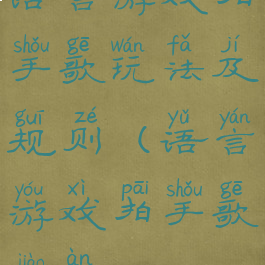 shǒu gē wán fǎ jí
手歌玩法及
guī zé yǔ yán
规则（语言
yóu xì pāi shǒu gē
游戏拍手歌
àn